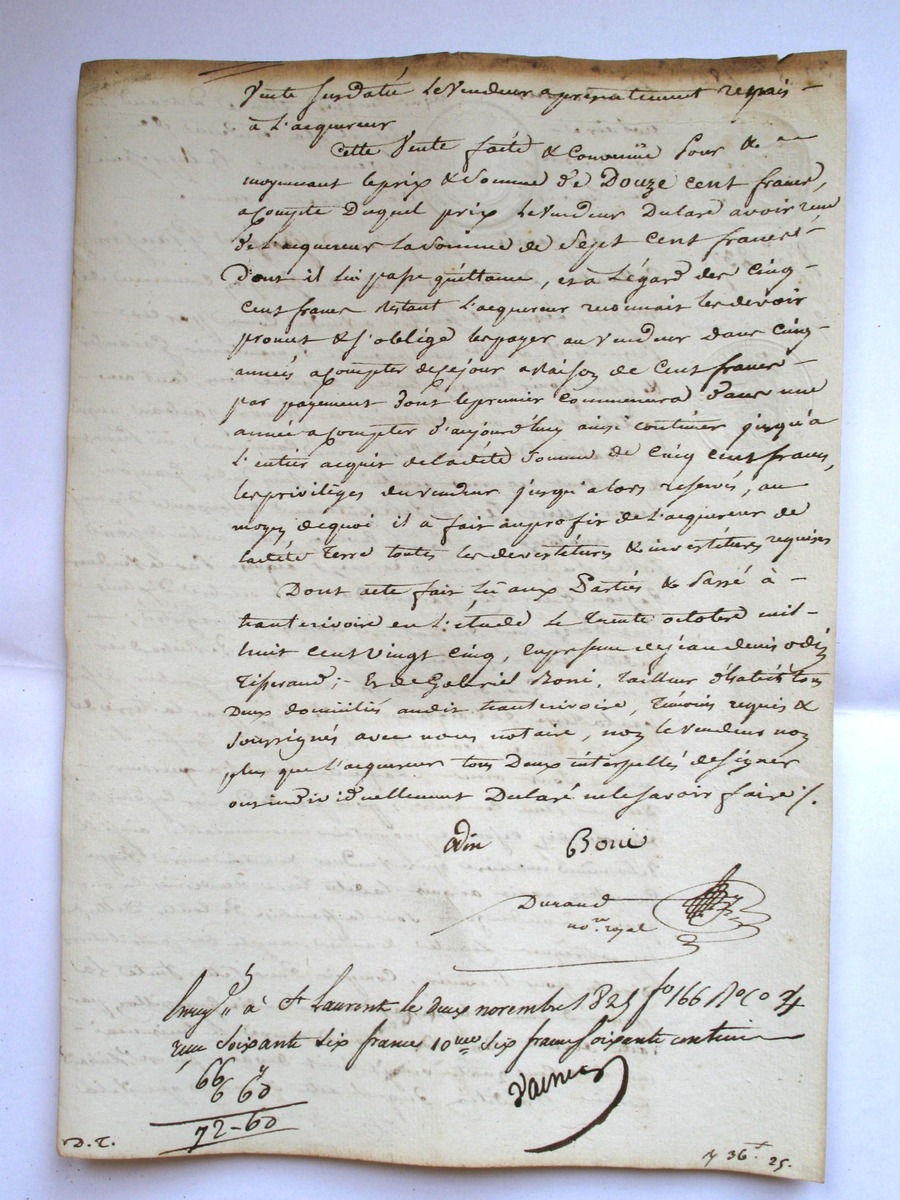 Vente susdaté le vendeur a présentement remis
à l'acquereur
Cette Vente faite & convenüe pour &
moyennant le prix & somme de Douze cent francs,
acompte Duquel prix le vendeur Declaré avoir reçu
de l'acquereur la somme de Sept cent francs
Dont il lui passe quittance, et a l'égard des Cinq
Cent francs restant l'acquereur reconnait les devoir
promet & s'oblige les payer au vendeur dans Cinq
années a compter de ce jour a raison de Cent francs
par payement dont le premier commencera dans une
année a compter d'aujourd'huy ainsi continuer jusqu'a
l'entier acquit de ladite somme de Cinq cent francs,
les privilèges du vendeur jusqu'alors reservés, au
moyen de quoi il a fait au profit de l'acquereur de
ladite Terre toutes les devestitures & investitures requises
Dont acte fait lû aux Parties & Passé à
hauterivoire en l'étude le trente octobre mil
huit cent vingt cinq, en presence de jean denis odin
Tisserand, Et de Gabriel Boni, Tailleur d'habits tous
Deux domiciliés audit hauterivoire, Témoins requis &
soussignés avec nous notaire, non le vendeur non
plus que l'acquereur tous Deux interpellés de signer
ont individuellement Declaré ne le savoir faire /.
Odin Boni
Durand
no.re royal
Enreg. à St Laurent le deux novembre 1825 fo 166 Ro Co 4
reçu soixante six francs 10me six francs soixante centimes
66
6 60
72-60
D. T.
36 25.